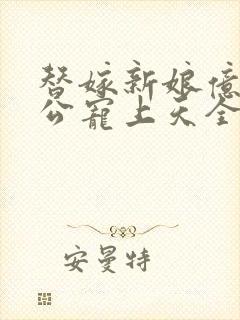 替嫁新娘億
公寵上天全
安曼特